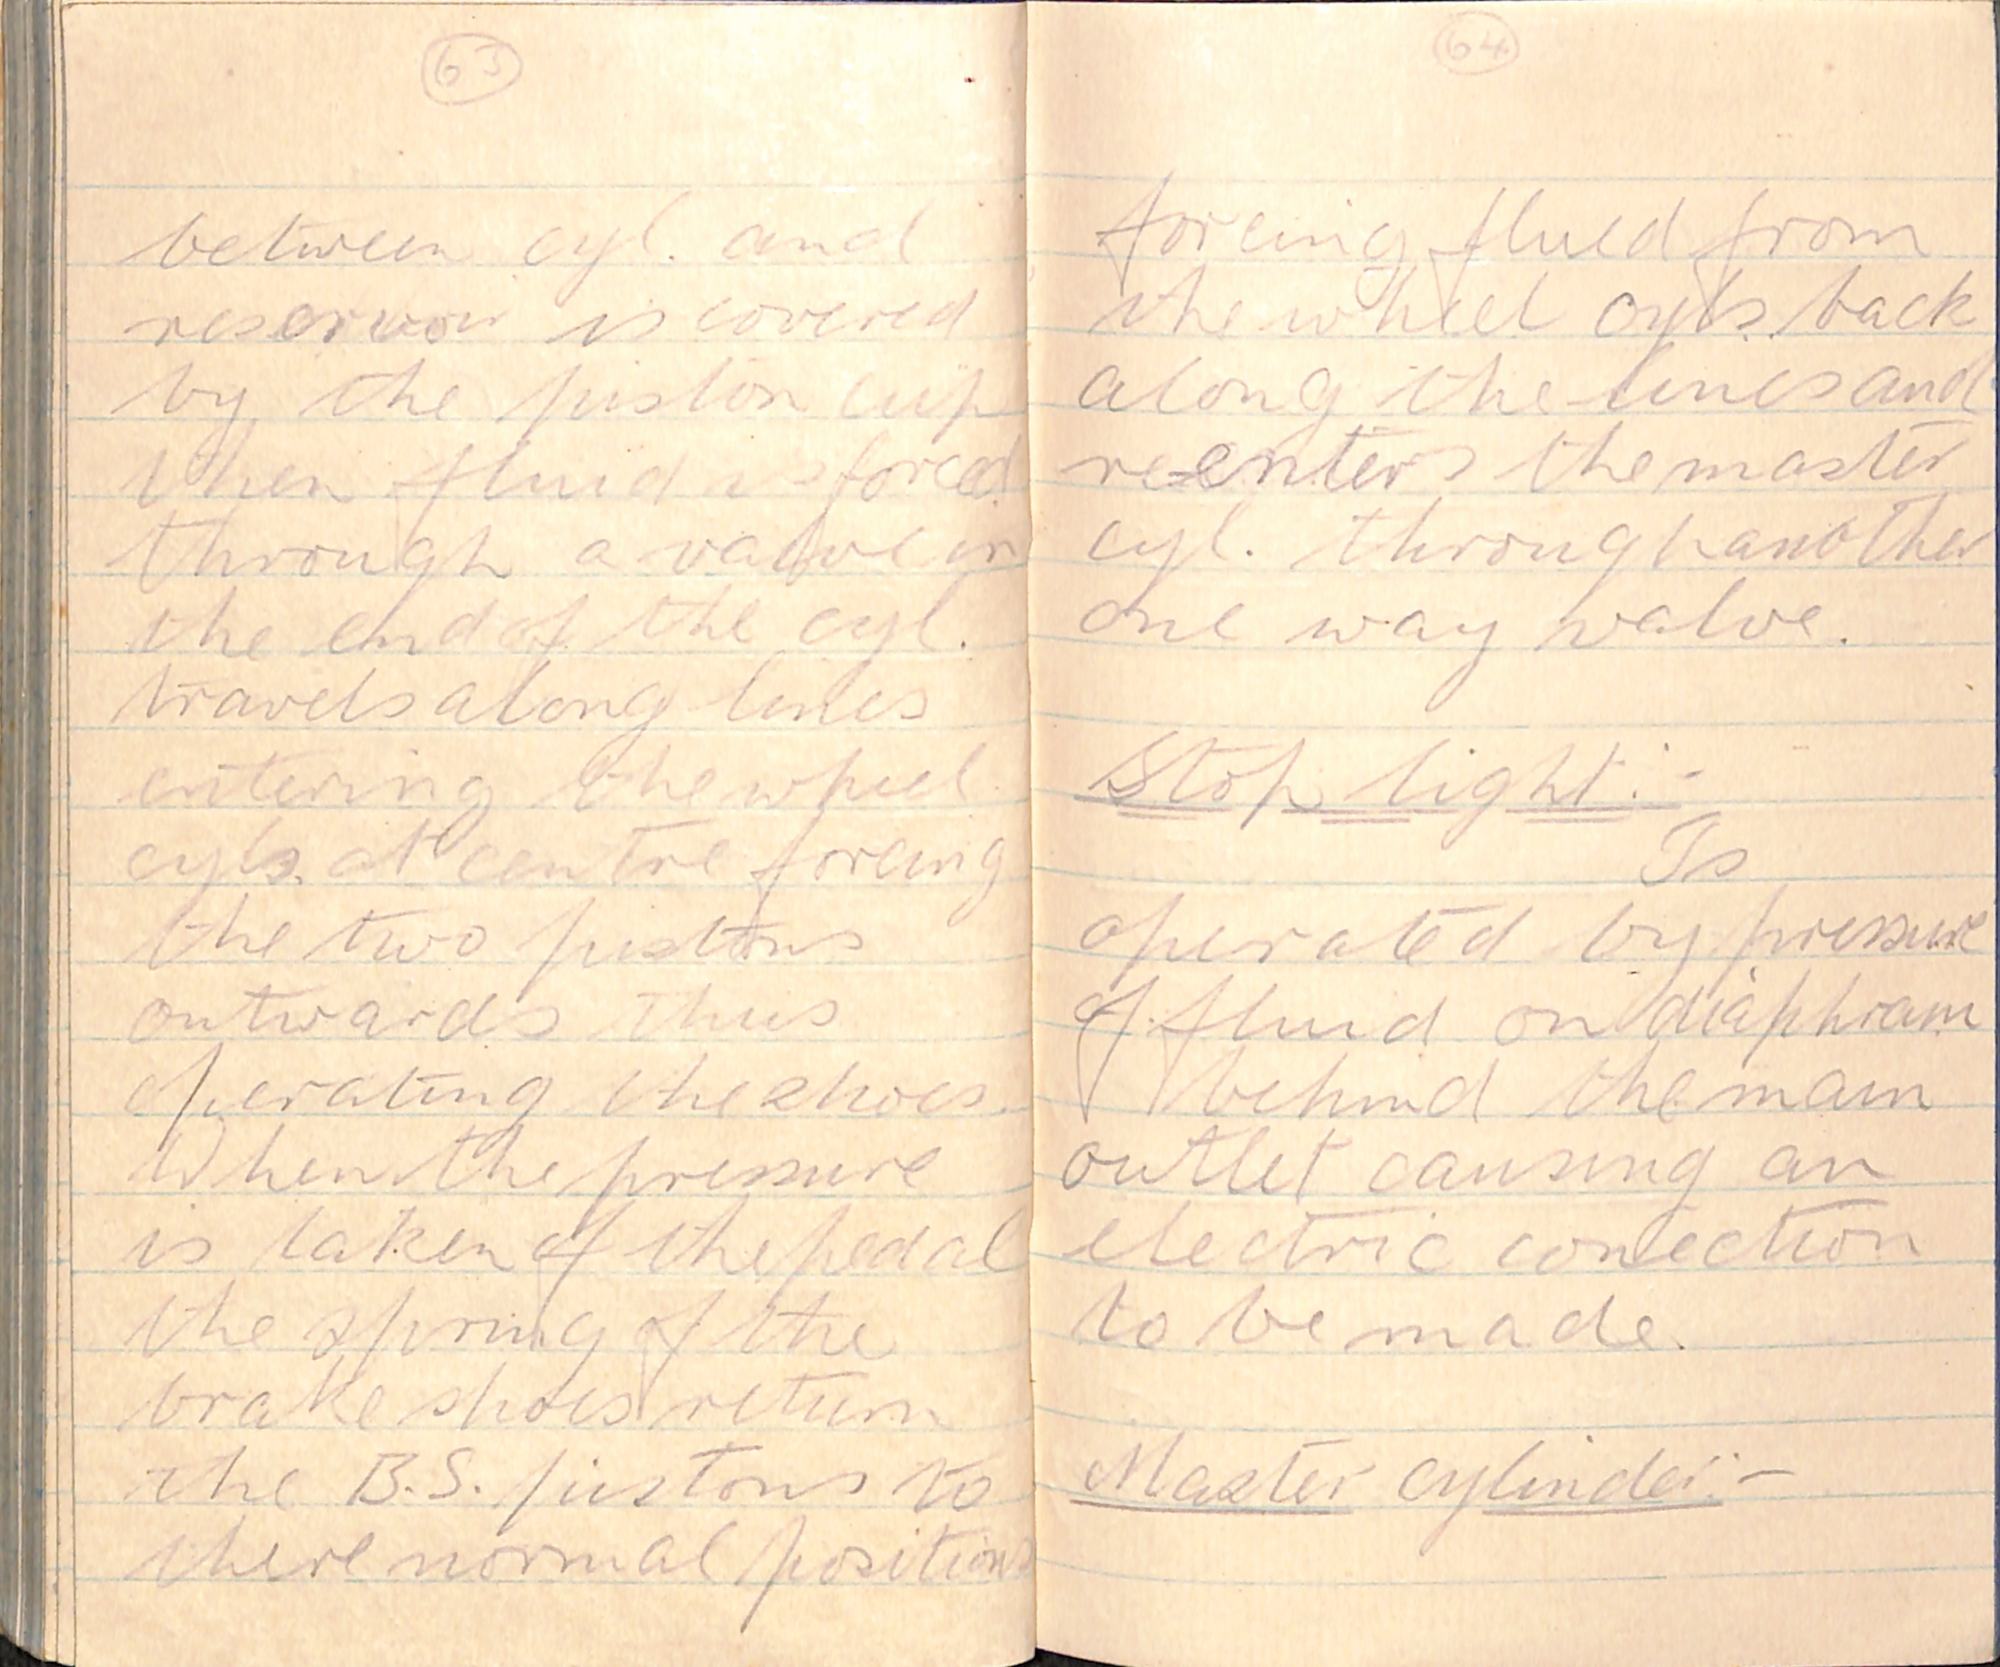 63
between cyl. and
reservoir is covered
by the piston cup
then fluid is forced
through a valve in
the end of the cyl.
travels along lines
entering the wheel
cyls. at centre forcing
the two pistons
outwards thus
operating the shoes.
When the pressure
is taken of the pedal
the spring of the
brake shoes return
the B.S. pistons to
there normal positions
64
forcing fluid from
the wheel cyls. back
along the lines and
re-enters the master
cyl. through another
one way valve.
Stop light:-
Is
operated by pressure
of fluid on diaphram
behind the main
outlet causing an
electric conection
to be made.
Master cylinder:-